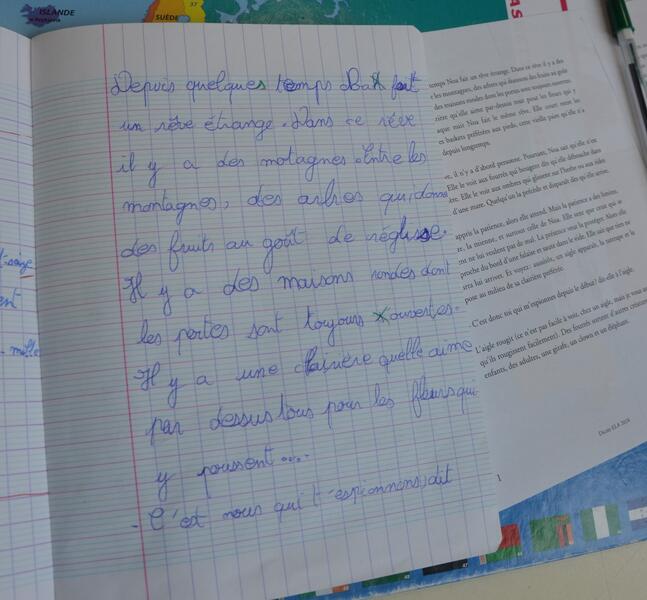 ISLANDE
Reykjavik
SUÈDE
37
Depuis quelques temps fait
un rêve étrange. Dans ce rêve
il y a des motagnes. Entre les
montagnes, des arbres qui donne
des fruits au goût de réglisse.
Il y a des maisons rondes dont
les portes sont toujours ouvertes.
Il y a une clairière quelle aime
par dessus tous pour les fleurs qui
y poussent ....
- C'est nous qui t'espionnens, dit
temps Noa fait un rêve étrange. Dans ce rêve il y a des
e les montagnes, des arbres qui donnent des fruits au goût
des maisons rondes dont les portes sont toujours ouvertes.
rière qu'elle aime par-dessus tout pour les fleurs qui y
aque nuit Noa fait le même rêve. Elle court entre les
es baskets préférées aux pieds, cette vieille paire qu'elle n'a
depuis longtemps.
ve, il n'y a d'abord personne. Pourtant, Noa sait qu'elle n'est
Elle le voit aux fourrés qui bougent dès qu'elle débouche dans
ère. Elle le voit aux ombres qui glissent sur l'herbe ou aux rides
d'une mare. Quelqu'un la précède et disparaît dès qu'elle arrive.
appris la patience, alors elle attend. Mais la patience a des limites,
re, la mienne, et surtout celle de Noa. Elle sent que ceux qui se
nt ne lui veulent pas de mal. La présence veut la protéger. Alors elle
proche du bord d'une falaise et saute dans le vide. Elle sait que rien ne
rra lui arriver. Et voyez : aussitôt, un aigle apparaît, la rattrape et la
pose au milieu de sa clairière préférée.
- C'est donc toi qui m'espionnes depuis le début ! dit-elle à l'aigle.
L'aigle rougit (ce n'est pas facile à voir, chez un aigle, mais je vous
qu'ils rougissent facilement). Des fourrés sortent d'autres créatures
enfants, des adultes, une girafe, un clown et un éléphant.
Dictée ELA 2024
1